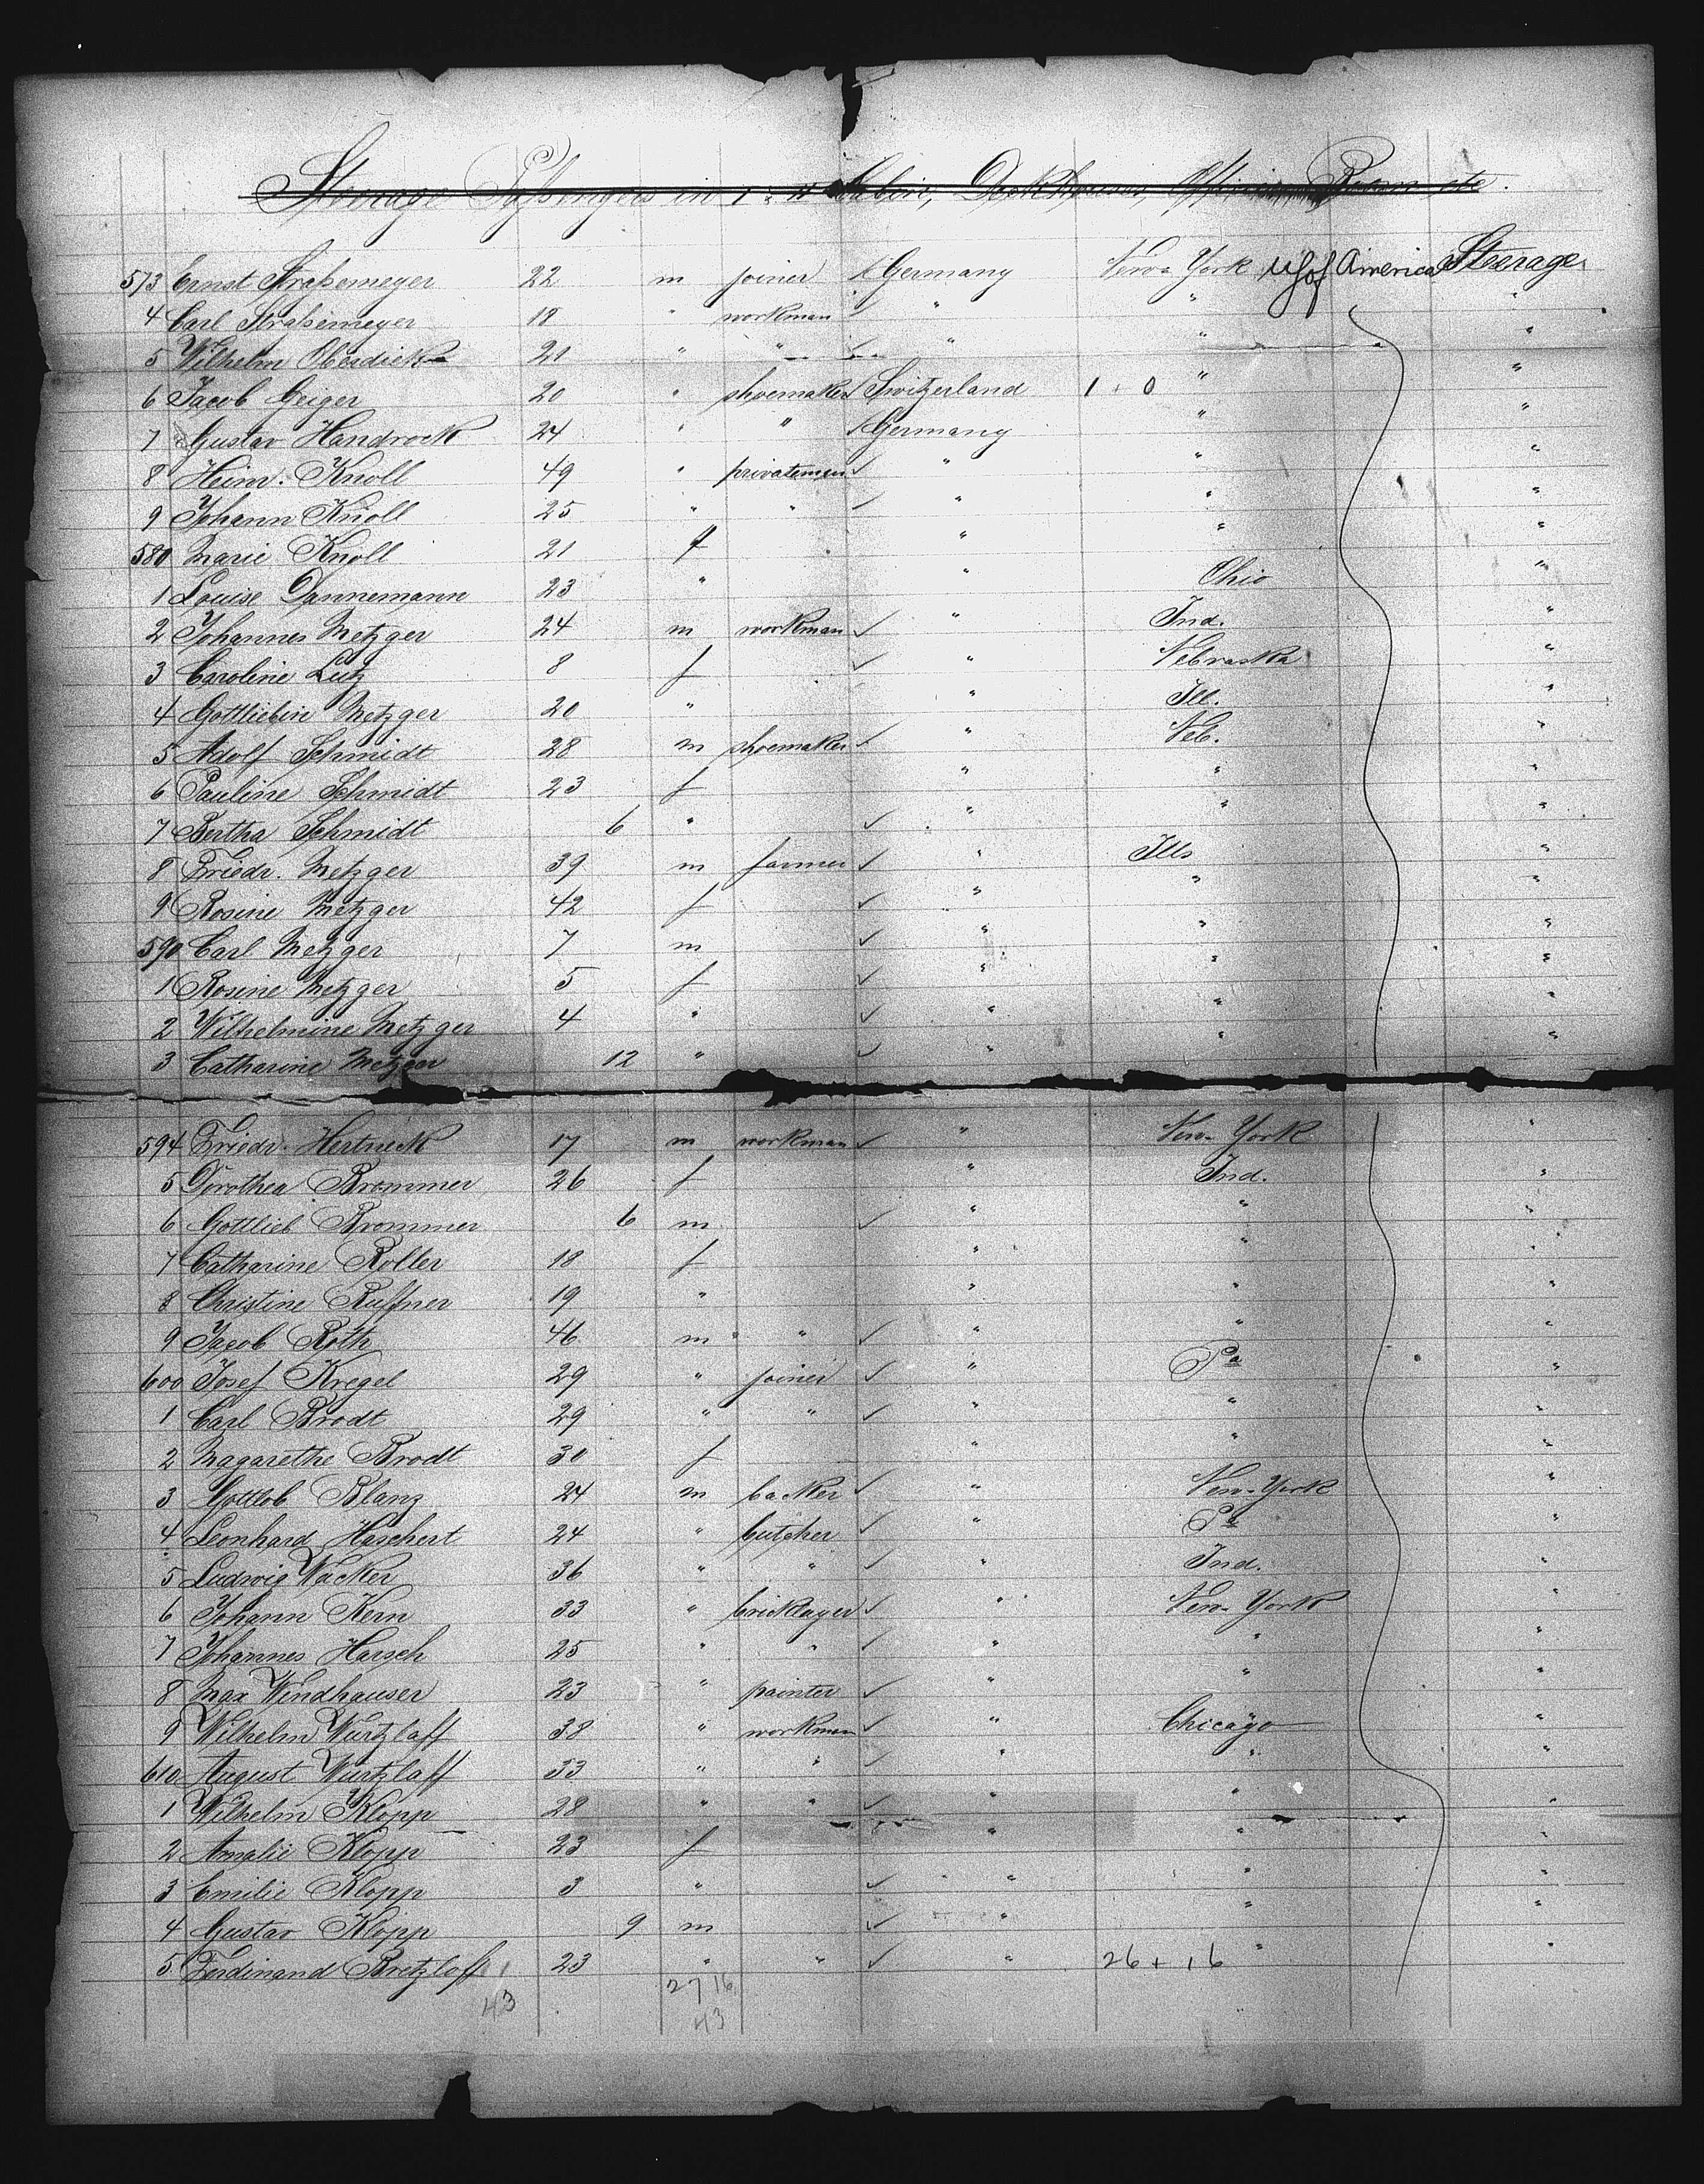 Steerage Passengers in I & II Cabin, Deck Houses, Officers Room etc.
573 Ernst Straßemeyer 22 m joiner ✓ Germany New-York US of America Steerage
4 Carl Straßemeyer 18 " workman ✓ " " "
5 Wilhelm Oberdieck 21 " " " " "
6 Jacob Geiger 20 " shoemaker ✓ Switzerland 1 + 0 " "
7 Gustav Handrock 24 " " ✓ Germany " "
8 Heinr. Knoll 49 " privatemen ✓ " " "
9 Johann Knoll 25 " " ✓ " " "
580 Marie Knoll 21 f " " "
1 Louise Dannemann 23 " " Ohio "
2 Johannes Metzger 24 m workman ✓ " Ind. "
3 Caroline Lutz 8 f ✓ " Nebraska "
4 Gottliebin Metzger 20 " " Ill. "
5 Adolf Schmidt 28 m shoemaker ✓ " Neb. "
6 Pauline Schmidt 23 f " " "
7 Bertha Schmidt 6 " ✓ " " "
8 Friedr. Metzger 39 m farmer ✓ " Ills "
9 Rosine Metzger 42 f ✓ " " "
590 Carl Metzger 7 m ✓ " " "
1 Rosine Metzger 5 f ✓ " " "
2 Wilhelmine Metzger 4 " ✓ " " "
3 Catharine Metzger 12 " ✓ " " "
594 Friedr. Hertneck 17 m workman ✓ " New-York "
5 Dorothea Brommer 26 f " Ind. "
6 Gottlieb Brommer 6 m ✓ " " "
7 Catharine Roller 18 f " " "
8 Christine Ruffner 19 " " " "
9 Jacob Roth 46 m " " ✓ " " "
600 Josef Kregel 29 " joiner ✓ " Pa "
1 Carl Brodt 29 " " ✓ " " "
2 Magarethe Brodt 30 f " " "
3 Gottlob Blanz 24 m backer ✓ " New-York "
4 Leonhard Haschert 24 " butcher ✓ " Pa "
5 Ludwig Wacker 36 " " ✓ " Ind. "
6 Johann Kern 33 " bricklayer ✓ " New-York "
7 Johannes Harsch 25 " " ✓ " " "
8 Max Windhauser 23 " painter ✓ " " "
9 Wilhelm Wurtzlaff 38 " workman ✓ " Chicago "
610 August Wurtzlaff 33 " " ✓ " " "
1 Wilhelm Klopp 28 " " ✓ " " "
2 Amalie Klopp 23 f " " "
3 Emilie Klopp 3 " ✓ " " "
4 Gustav Klopp 9 m ✓ " " "
5 Ferdinand Bretzlaff 23 " " ✓ " 26 + 16 " "
43 27 16
43